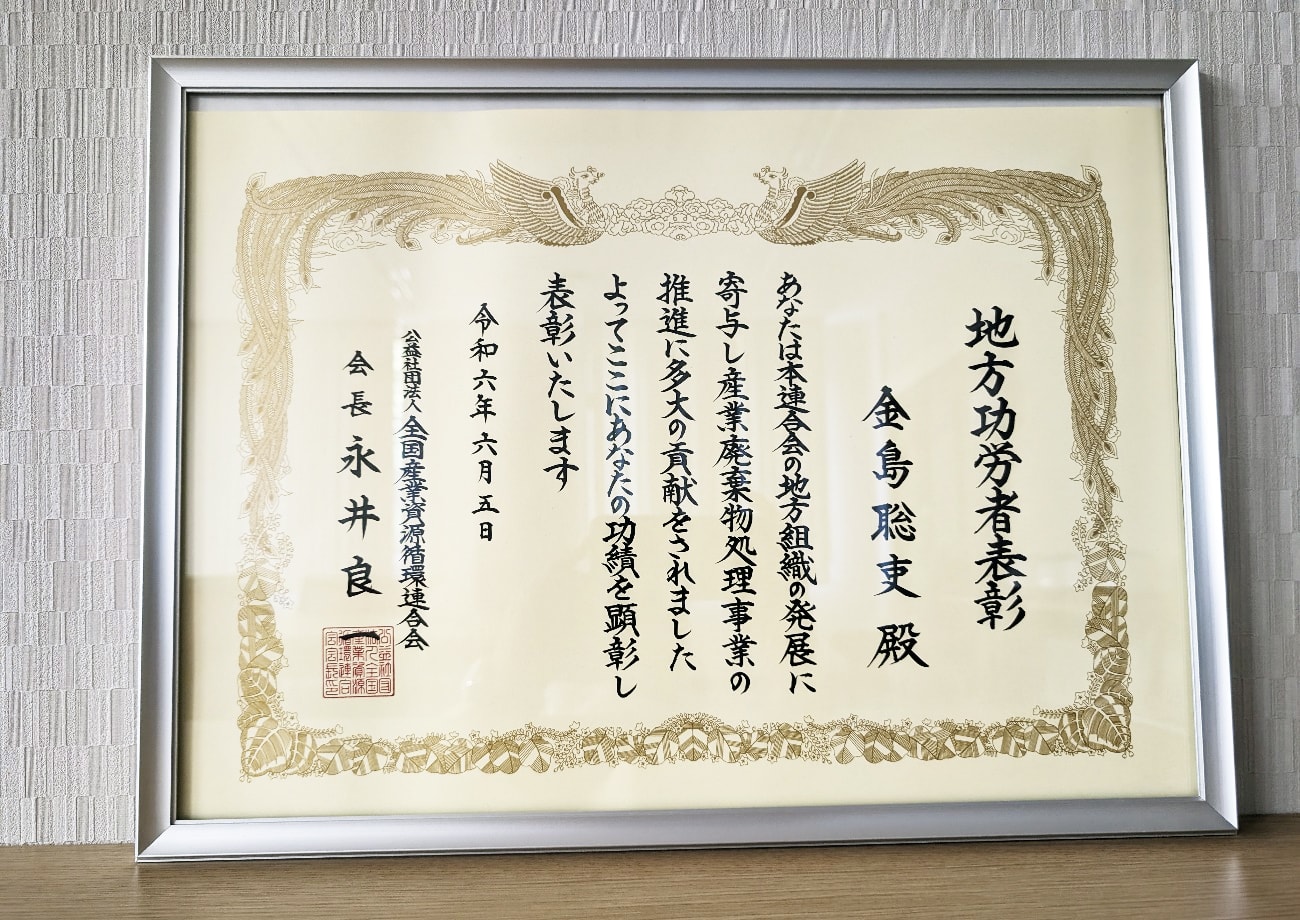 地方功労者表彰
金島聡吏殿
あなたは本連合会の地方組織の発展に
寄与し産業廃棄物処理事業の
推進に多大の貢献をされました
よってここにあなたの功績を顕彰し
表彰いたします
令和六年六月五日
公益社団法人全国産業資源循環連合会
会長永井良一